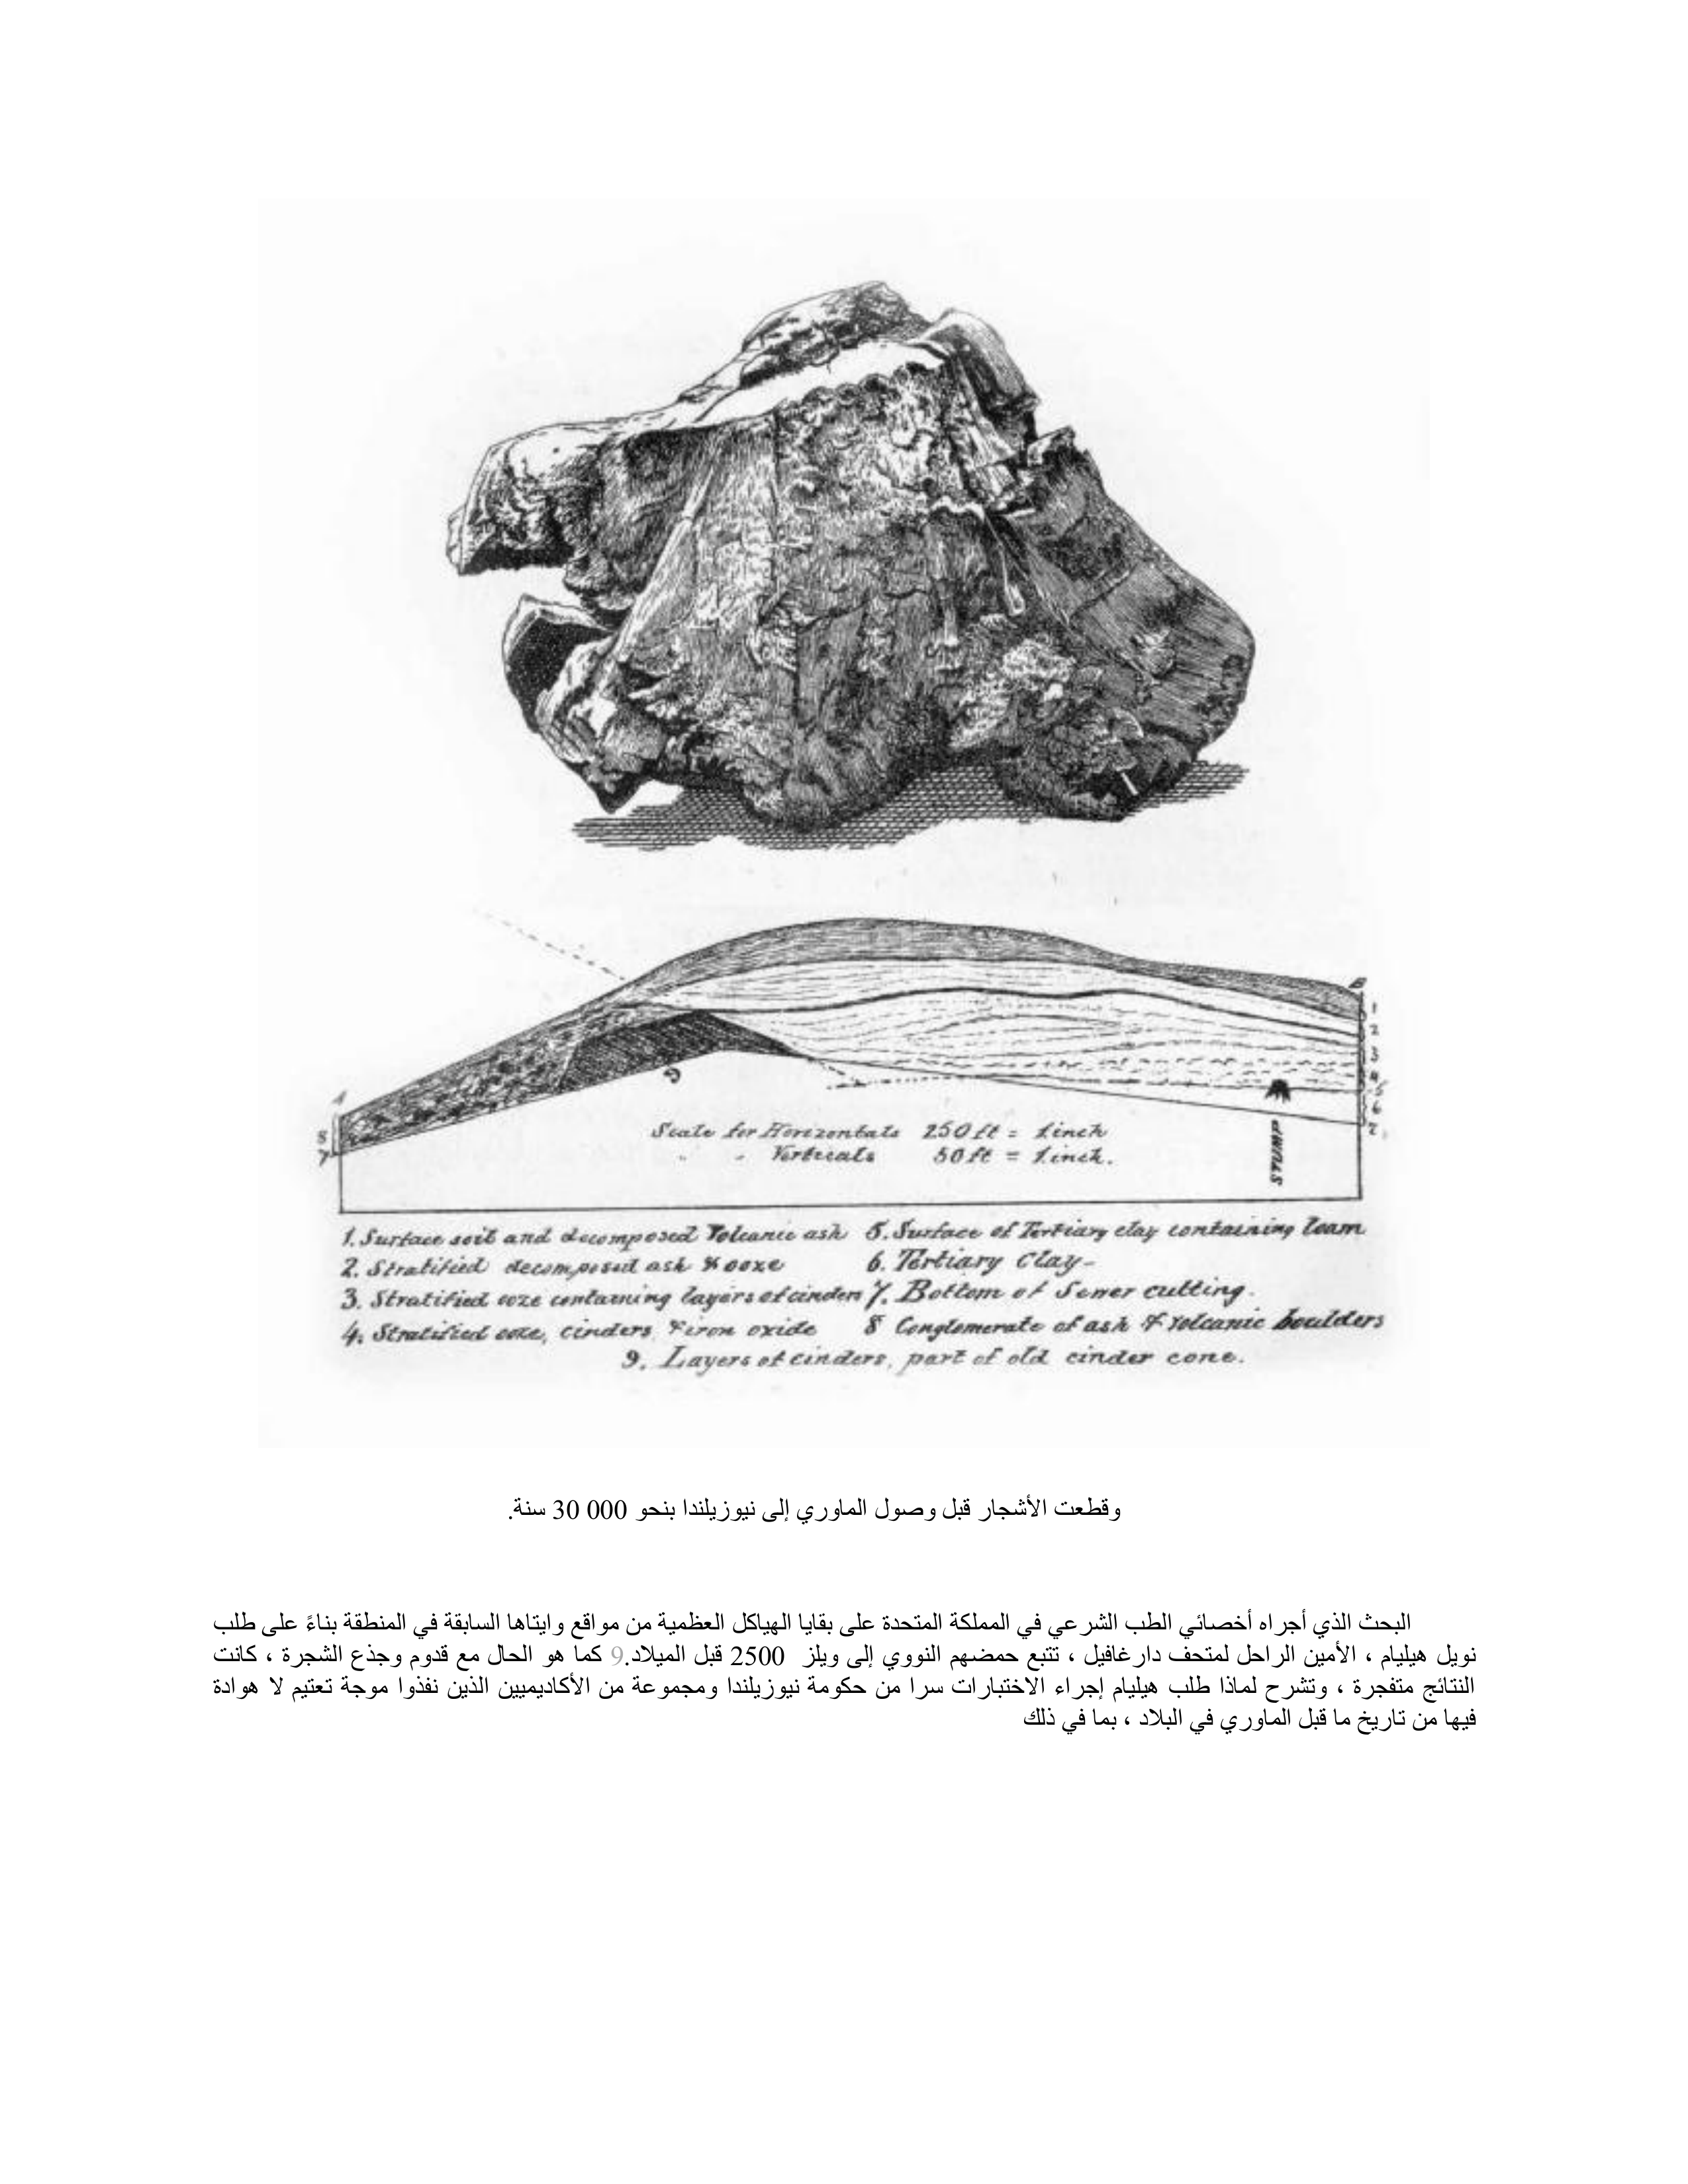 A
B
1
2
3
4
5
6
7
8
7
9
STUMP
Scale for Horizontals 250 ft = 1 inch
" " Verticals 50 ft = 1 inch.
1. Surface soil and decomposed Volcanic ash 5. Surface of Tertiary clay containing loam
2. Stratified decomposed ash & ooze 6. Tertiary Clay-
3. Stratified ooze containing layers of cinders 7. Bottom of Sewer cutting.
4. Stratified ooze, cinders & iron oxide 8 Conglomerate of ash & Volcanic boulders
9. Layers of cinders, part of old cinder cone.
وقطعت الأشجار قبل وصول الماوري إلى نيوزيلندا بنحو 000 30 سنة.
البحث الذي أجراه أخصائي الطب الشرعي في المملكة المتحدة على بقايا الهياكل العظمية من مواقع وايتاها السابقة في المنطقة بناءً على طلب
نويل هيليام ، الأمين الراحل لمتحف دارغافيل ، تتبع حمضهم النووي إلى ويلز 2500 قبل الميلاد.9 كما هو الحال مع قدوم وجذع الشجرة ، كانت
النتائج متفجرة ، وتشرح لماذا طلب هيليام إجراء الاختبارات سرا من حكومة نيوزيلندا ومجموعة من الأكاديميين الذين نفذوا موجة تعتيم لا هوادة
فيها من تاريخ ما قبل الماوري في البلاد ، بما في ذلك